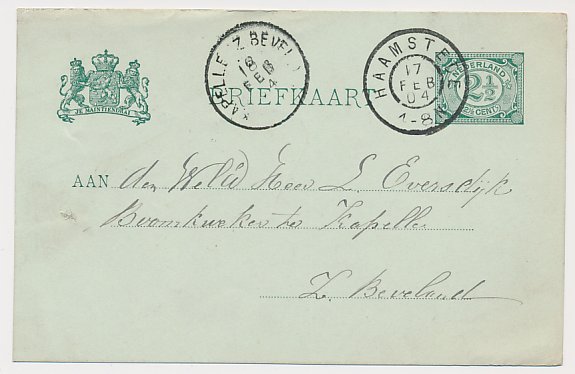 KAPELLE Z. BEVEL.
18
FEB
04
HAAMSTEDE
17
FEB
04
4-8N
NEDERLAND
2½
2½ CENT
JE MAINTIENDRAI
BRIEFKAART
AAN den WelEd Heer L. Eversdijk
Boomkweker te Kapelle
Z. Beveland